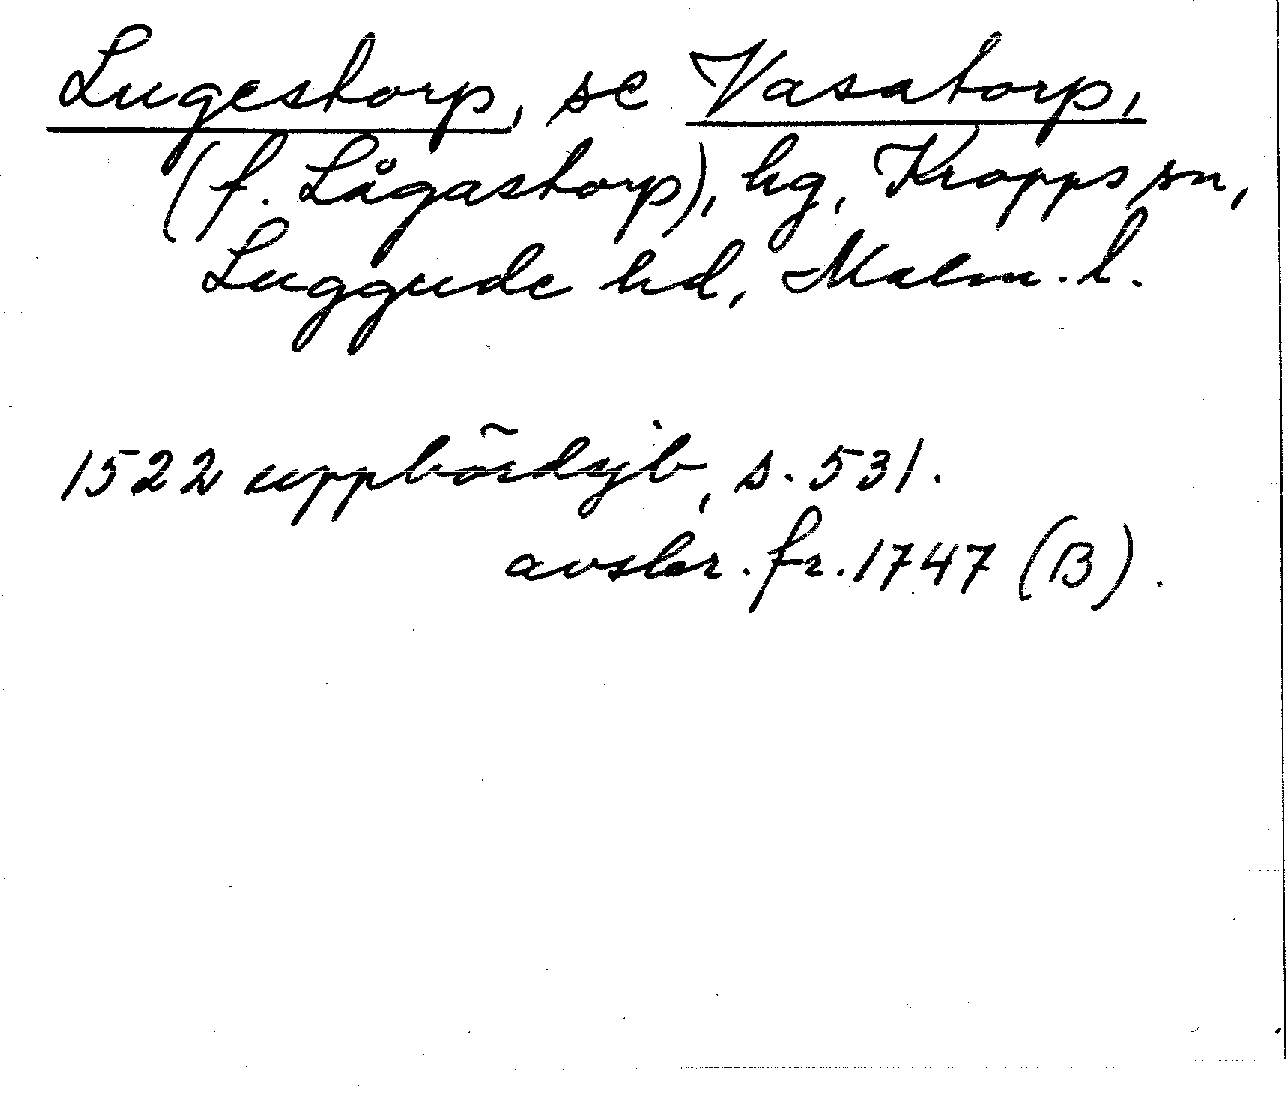 Lugestorp, se Vasatorp,
(f. Lågastorp), hg, Kropps sn,
Luggude hd, Malm. l.
1522 uppbördsjb, s. 531.
avskr. fr. 1747 (B).